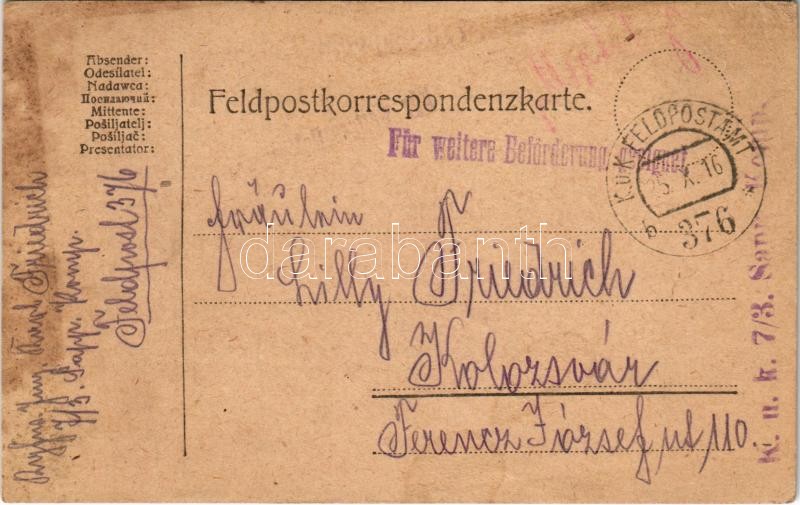 Absender:
Odesílatel:
Nadawca:
Посилаючий:
Mittente:
Pošiljatelj:
Pošiljač:
Presentator:
Feldpostkorrespondenzkarte.
Für weitere Beförderung geeignet
K.u.K. FELDPOSTAMT
25. X. 16
b 376 *
K. u. k. 7/3. Sapp.
Friedrich
7/3. Sapp. Komp.
Feldpost 376
Fräulein
Lilly Friedrich
Kolozsvár
Ferencz József ut 110.
darabanth